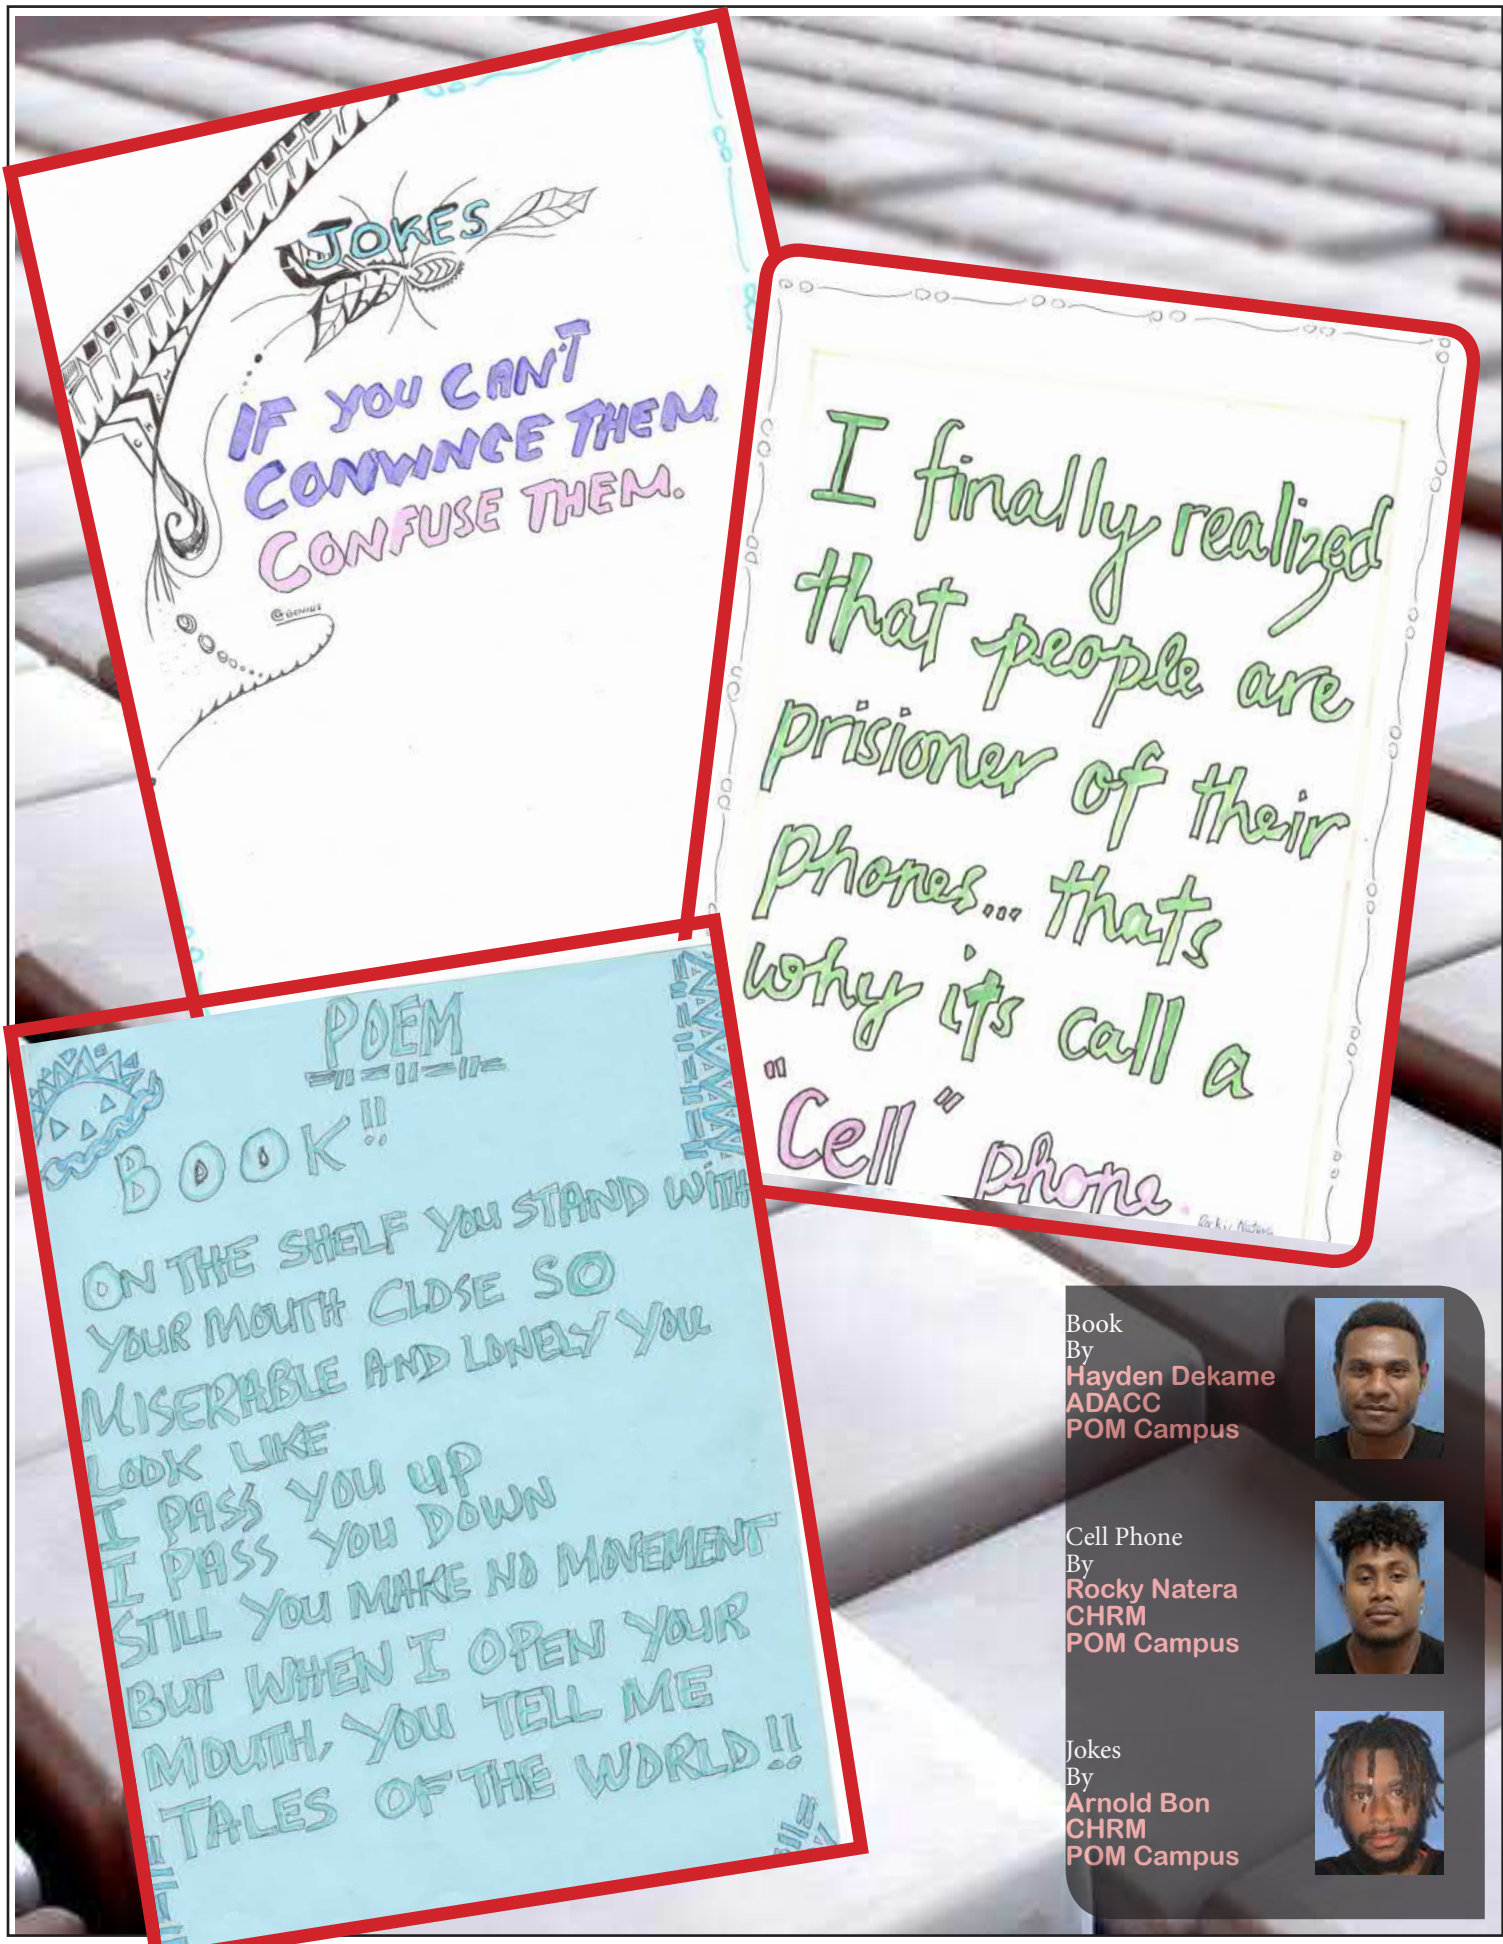 JOKES
IF YOU CAN'T
CONVINCE THEM
CONFUSE THEM.
@GENIUS
I finally realized
that people are
prisioner of their
phones... thats
why it's call a
"Cell" phone.
Rocky Natera
POEM
BOOK!!
ON THE SHELF YOU STAND WITH
YOUR MOUTH CLOSE SO
MISERABLE AND LONELY YOU
LOOK LIKE
I PASS YOU UP
I PASS YOU DOWN
STILL YOU MAKE NO MOVEMENT
BUT WHEN I OPEN YOUR
MOUTH, YOU TELL ME
TALES OF THE WORLD!!
Book
By
Hayden Dekame
ADACC
POM Campus
Cell Phone
By
Rocky Natera
CHRM
POM Campus
Jokes
By
Arnold Bon
CHRM
POM Campus